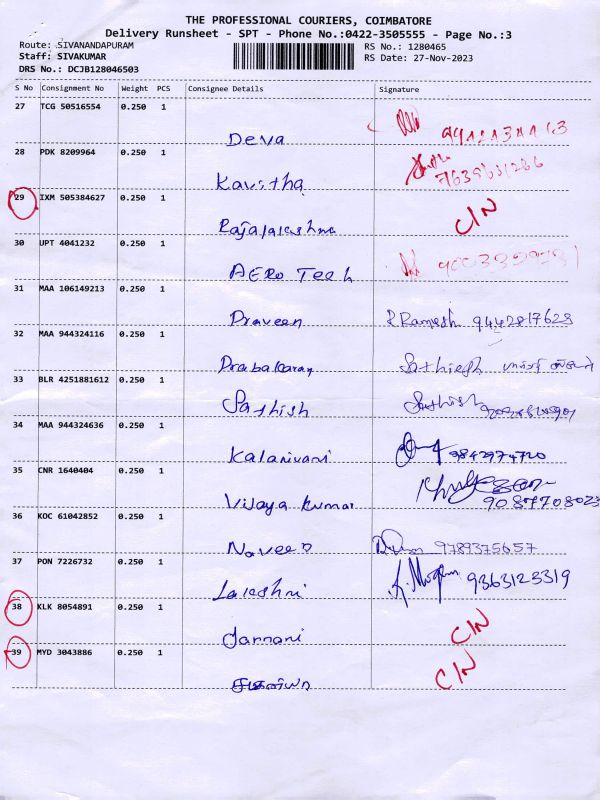 THE PROFESSIONAL COURIERS, COIMBATORE
Delivery Runsheet - SPT - Phone No.:0422-3505555 - Page No.:3
Route: SIVANANDAPURAM RS No.: 1280465
Staff: SIVAKUMAR RS Date: 27-Nov-2023
DRS No.: DCJB128046503
S No Consignment No Weight PCS Consignee Details Signature
27 TCG 50516554 0.250 1
Deva
28 PDK 8209964 0.250 1
Kavitha
29 IXM 505384627 0.250 1 C/N
30 UPT 4041232 0.250 1
AERO Tech
31 MAA 106149213 0.250 1
Praveen R Ramesh 9442817623
32 MAA 944324116 0.250 1
Prabakaran
33 BLR 4251881612 0.250 1
Sathish Sathish
34 MAA 944324636 0.250 1
Kalaivani 9842974720
35 CNR 1640404 0.250 1
Vijaya kumar 9087708023
36 KOC 61042852 0.250 1
Naveen 9789375657
37 PON 7226732 0.250 1
9363123319
38 KLK 8054891 0.250 1
Jannani C/N
39 MYD 3043886 0.250 1
C/N